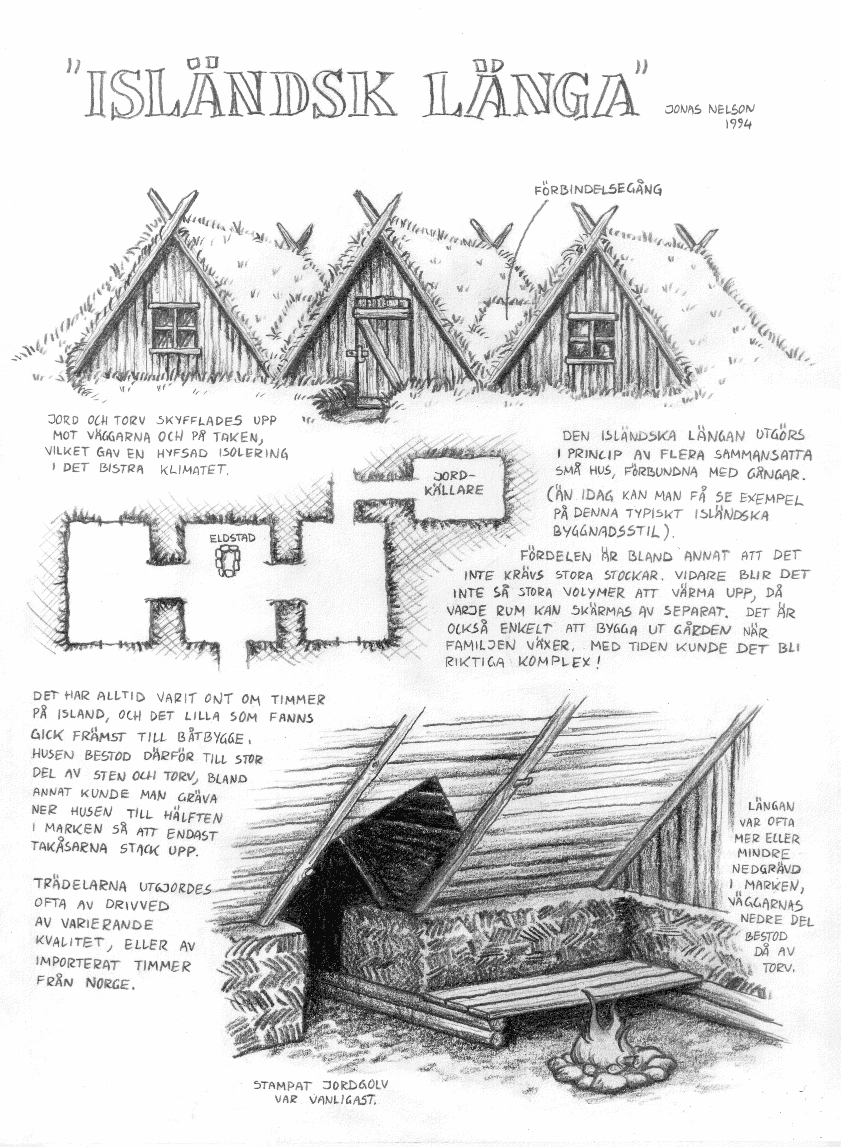 "ISLÄNDSK LÄNGA"
JONAS NELSON
1994
FÖRBINDELSEGÅNG
JORD OCH TORV SKYFFLADES UPP
MOT VÄGGARNA OCH PÅ TAKEN,
VILKET GAV EN HYFSAD ISOLERING
I DET BISTRA KLIMATET.
JORD-
KÄLLARE
ELDSTAD
DEN ISLÄNDSKA LÄNGAN UTGÖRS
I PRINCIP AV FLERA SAMMANSATTA
SMÅ HUS, FÖRBUNDNA MED GÅNGAR.
(ÄN IDAG KAN MAN FÅ SE EXEMPEL
PÅ DENNA TYPISKT ISLÄNDSKA
BYGGNADSSTIL).
FÖRDELEN ÄR BLAND ANNAT ATT DET
INTE KRÄVS STORA STOCKAR. VIDARE BLIR DET
INTE SÅ STORA VOLYMER ATT VÄRMA UPP, DÅ
VARJE RUM KAN SKÄRMAS AV SEPARAT. DET ÄR
OCKSÅ ENKELT ATT BYGGA UT GÅRDEN NÄR
FAMILJEN VÄXER. MED TIDEN KUNDE DET BLI
RIKTIGA KOMPLEX!
DET HAR ALLTID VARIT ONT OM TIMMER
PÅ ISLAND, OCH DET LILLA SOM FANNS
GICK FRÄMST TILL BÅTBYGGE.
HUSEN BESTOD DÄRFÖR TILL STOR
DEL AV STEN OCH TORV, BLAND
ANNAT KUNDE MAN GRÄVA
NER HUSEN TILL HÄLFTEN
I MARKEN SÅ ATT ENDAST
TAKÅSARNA STACK UPP.
TRÄDELARNA UTGJORDES
OFTA AV DRIVVED
AV VARIERANDE
KVALITET, ELLER AV
IMPORTERAT TIMMER
FRÅN NORGE.
LÄNGAN
VAR OFTA
MER ELLER
MINDRE
NEDGRÄVD
I MARKEN,
VÄGGARNAS
NEDRE DEL
BESTOD
DÅ AV
TORV.
STAMPAT JORDGOLV
VAR VANLIGAST.